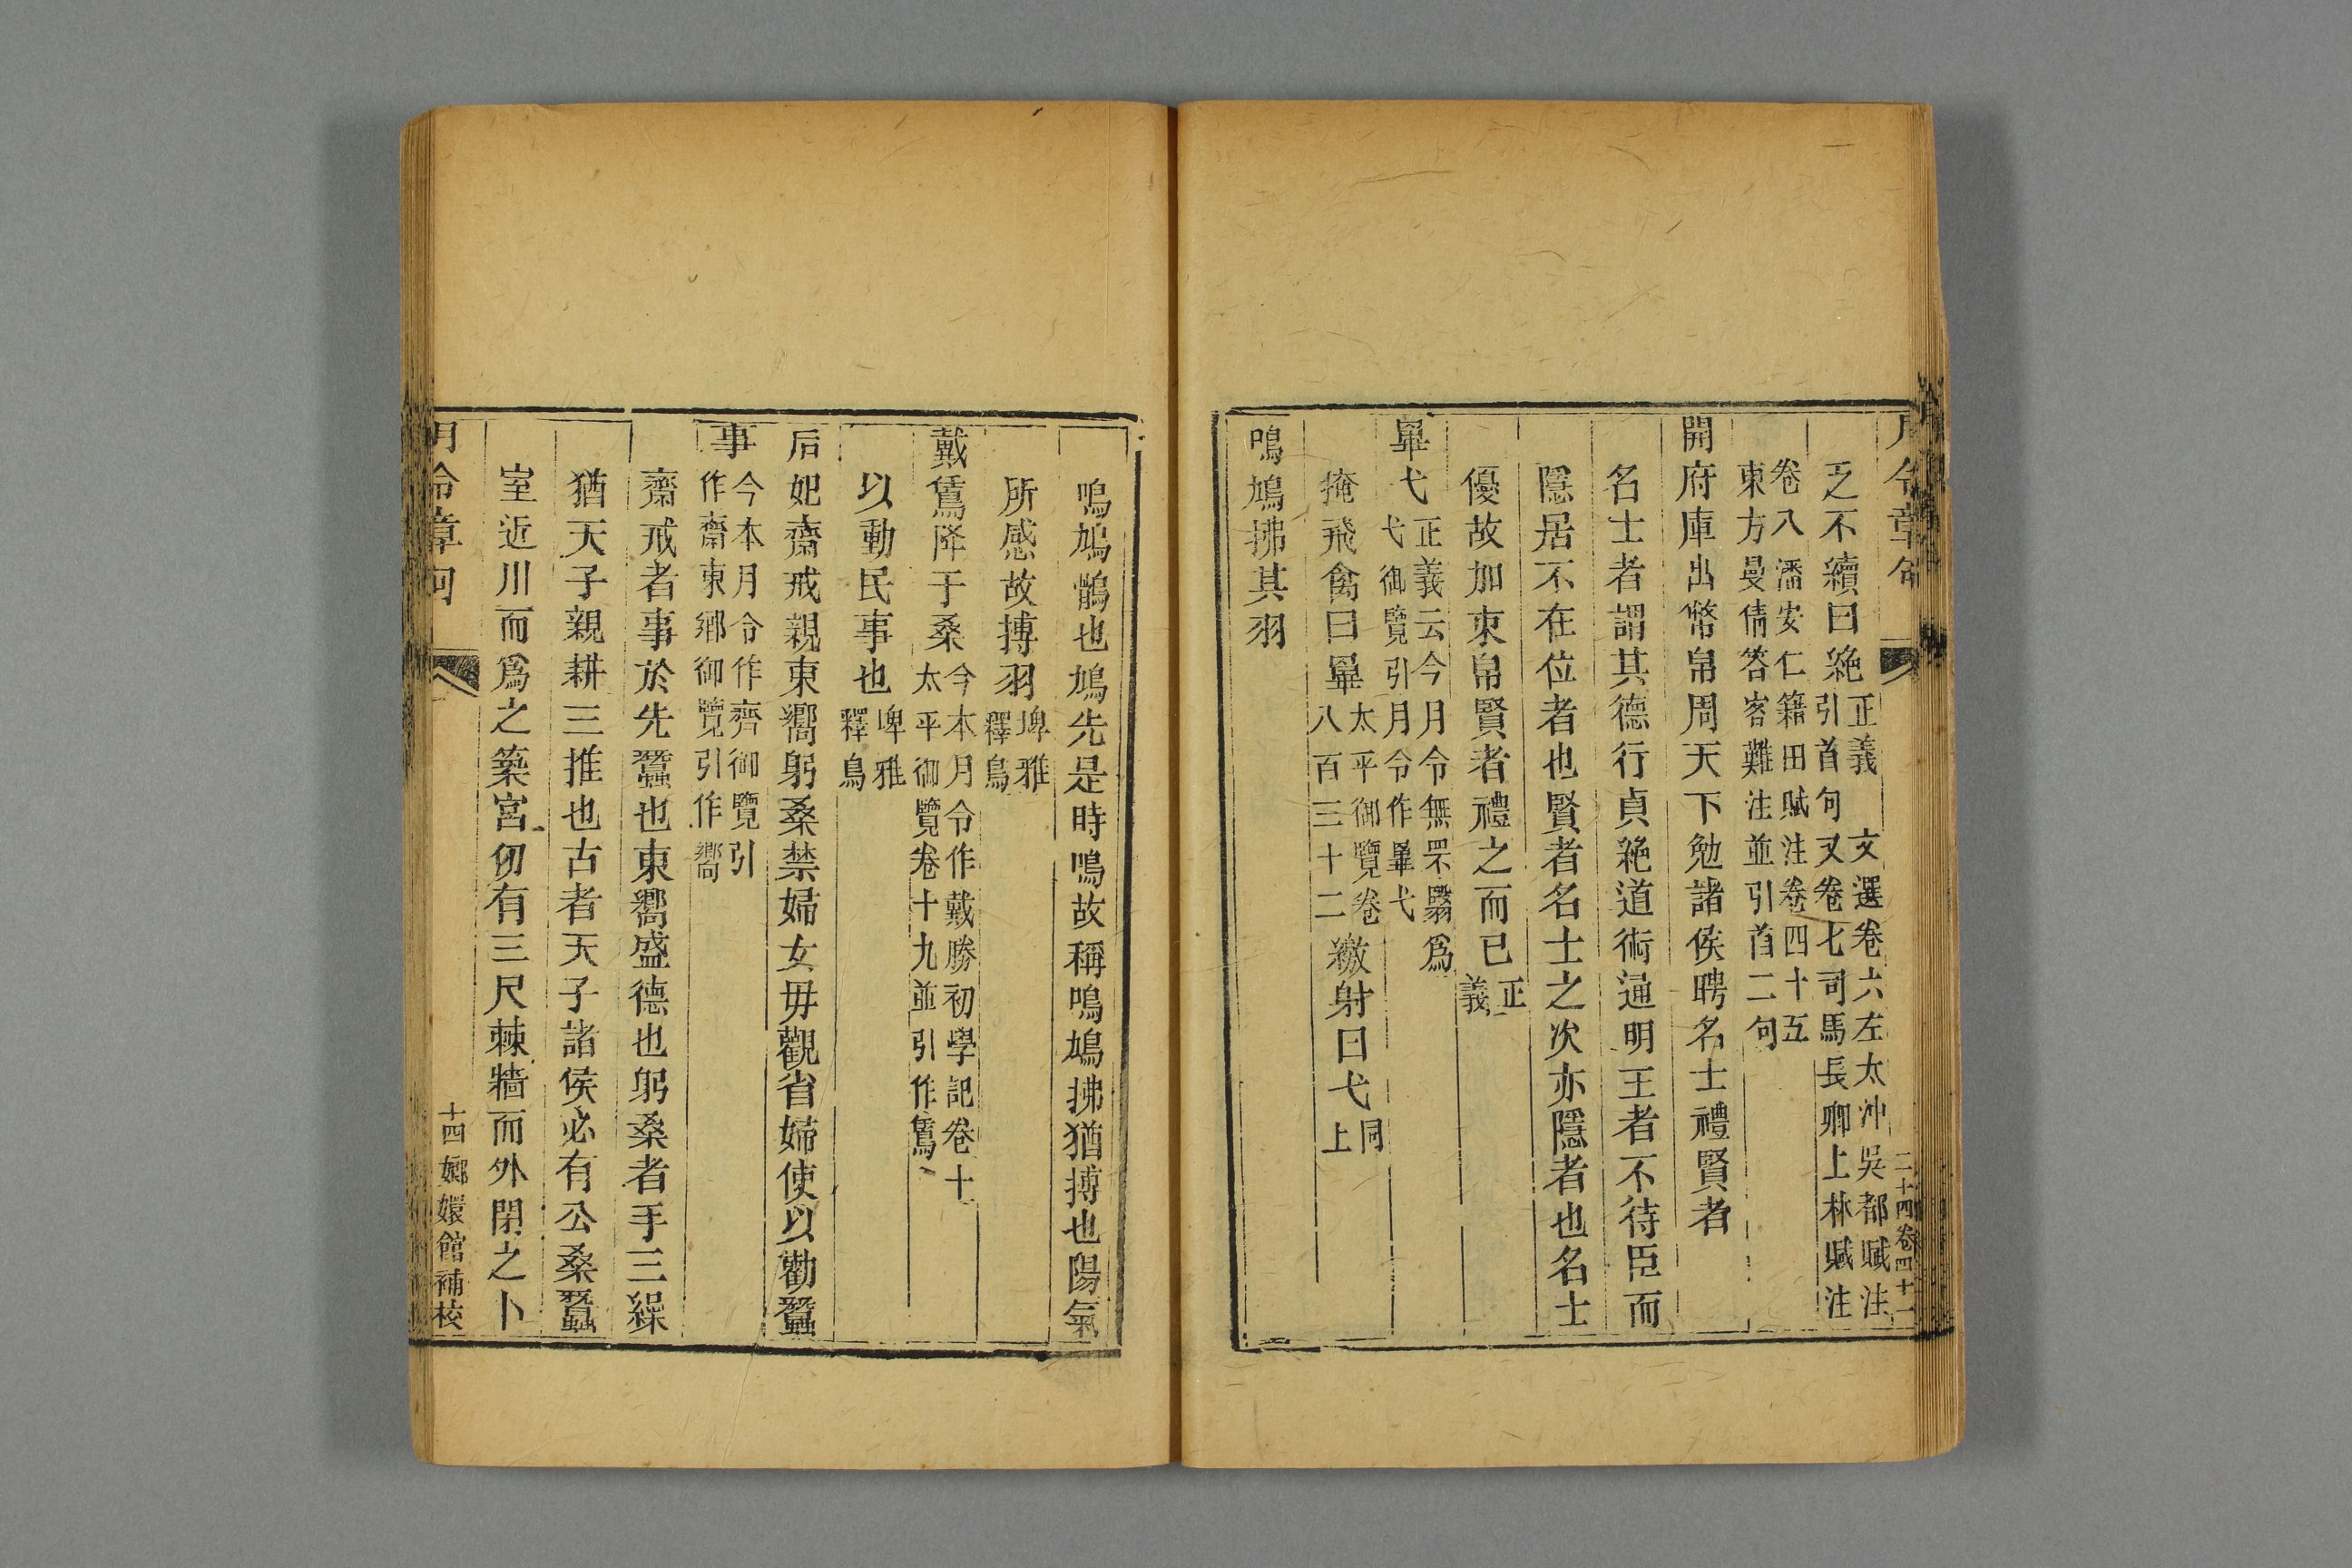 月令章句
二十四卷四十一
乏不續曰絶正義引首句又文選卷六左太沖吳都賦注卷七司馬長卿上林賦注
卷八潘安仁籍田賦注卷四十五東方曼倩答客難注並引首二句
開府庫出幣帛周天下勉諸侯聘名士禮賢者
名士者謂其德行貞絶道術通明王者不待臣而
隱居不在位者也賢者名士之次亦隱者也名士
優故加束帛賢者禮之而已正義
畢弋正義云今月令無罘翳爲弋御覽引月令作畢弋
掩飛禽曰畢太平御覽卷八百三十二繳射曰弋同上
鳴鳩拂其羽
鳴鳩鶻也鳩先是時鳴故稱鳴鳩拂猶搏也陽氣
所感故搏羽埤雅釋鳥
戴鵀降于桑今本月令作戴勝初學記卷十太平御覽卷十九並引作鵀
以動民事也埤雅釋鳥
后妃齋戒親東嚮躬桑禁婦女毋觀省婦使以勸蠶
事今本月令作齊御覽引作齋東鄉御覽引作嚮
齋戒者事於先蠶也東嚮盛德也躬桑者手三繰
猶天子親耕三推也古者天子諸侯必有公桑蠶
室近川而爲之築宮仞有三尺棘牆而外閉之卜
月令章句
十四 嫏嬛館補校